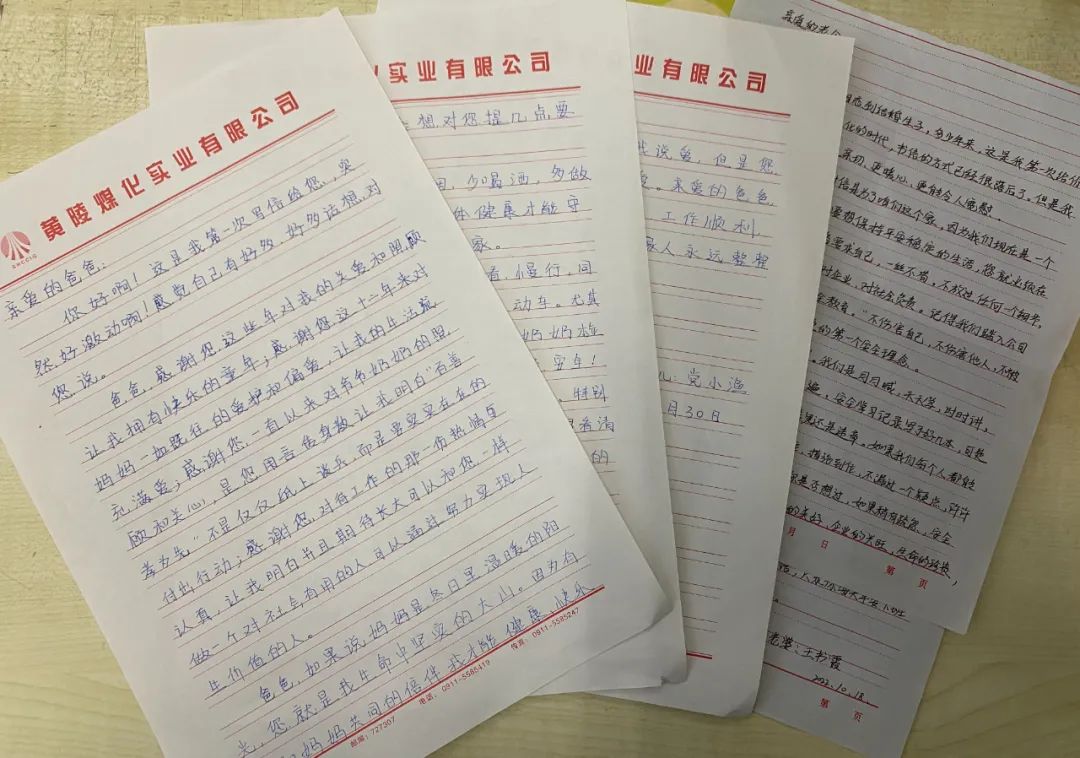 黄陵煤化实业有限公司
亲爱的爸爸:
你好啊!这是我第一次写信给您,突
然好激动啊!感觉自己有好多好多话想对
您说。
爸爸,感谢您这些年对我的关爱和照顾
让我拥有快乐的童年;感谢您这十二年来对
妈妈一如既往的爱护和偏爱,让我的生活充
满爱;感谢您一直以来对爷爷奶奶的照
顾和关心,是您用言传身教让我明白“百善
孝为先”不是仅仅纸上谈兵而是要实实在在的
付出行动;感谢您对待工作的那一份热情与
认真,让我明白并且期待长大可以和您一样
做一个对社会有用的人可以通过努力实现人
生价值的人。
爸爸,如果说妈妈是冬日里温暖的阳
光,您就是我生命中坚实的大山。因为有
妈妈共同的陪伴我才能健康、快乐
邮编:727307 电话:0911-5585419 传真:0911-5585247
实业有限公司
想对您提几点要
少喝酒,多做
体健康才能守
家。
慢行,同
动车。尤其
妈妈
安车!
特别
清
的
业有限公司
说爱,但是您
亲爱的爸爸
工作顺利
家人永远整整
党小溢
月30日
亲爱的老公
恋到结婚生子,多少年来,这是我第一次给你
化的时代,书信的方式已经很落后了。但是我
亲切、更暖心、更能令人宽慰。
信是为了咱们这个家,因为我们现在是一个
要想保持平安稳定的生活,您就必须在
要求自己,一丝不苟,不放过任何一个细节,
对企业,对社会负责。记得我们踏入公司
全教育。“不伤害自己,不伤害他人,不被
的第一个安全理念。
我们是月月喊,天天学,时时讲,
遍,安全学习记录写了好几本,可是
课还是违章。如果我们每个人都能
措施到位,不漏过一个疑点,许许
是否想过,如果稍有疏忽,安全
的美好,企业的兴旺,生命的珍贵,
月 日 第 页
王书霞
10.18
第 页